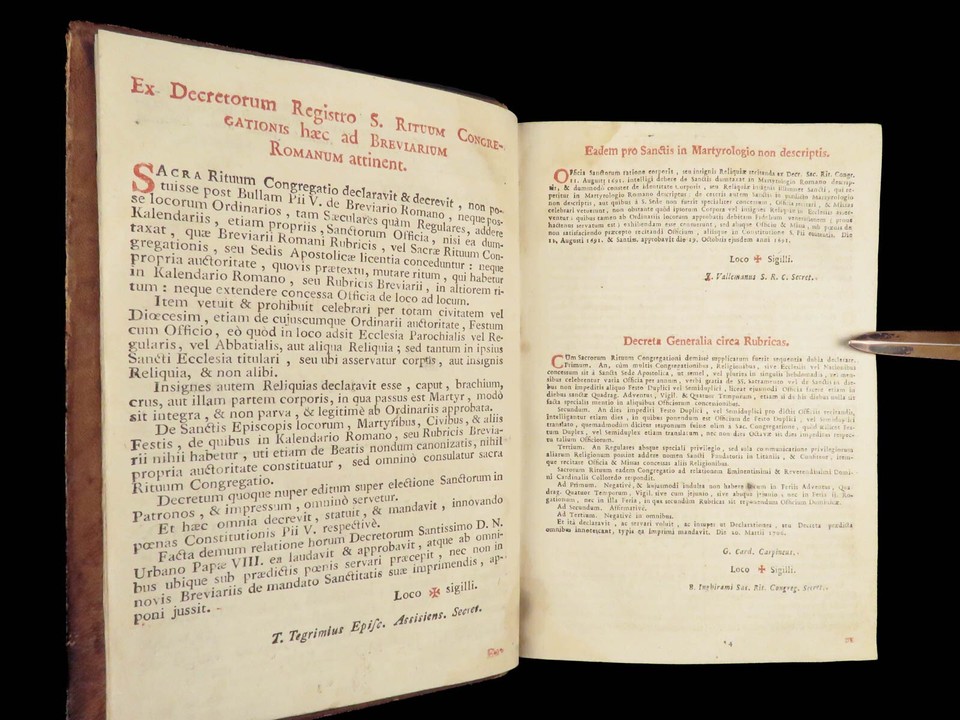 Ex Decretorum Registro S. Rituum Congre-
gationis hæc ad Breviarium
Romanum attinent.
SACRA Rituum Congregatio declaravit & decrevit , non po-
tuisse post Bullam Pii V. de Breviario Romano , neque pos-
se locorum Ordinarios , tam Sæculares quàm Regulares, addere
Kalendariis , etiam propriis , Sanctorum Officia , nisi ea dum-
taxat , quæ Breviarii Romani Rubricis , vel Sacræ Rituum Con-
gregationis , seu Sedis Apostolicæ licentia conceduntur : neque
propria auctoritate , quovis prætextu, mutare ritum , qui habetur
in Kalendario Romano , seu Rubricis Breviarii , in altiorem ri-
tum : neque extendere concessa Officia de loco ad locum.
Item vetuit & prohibuit celebrari per totam civitatem vel
Diœcesim , etiam de cujuscumque Ordinarii auctoritate , Festum
cum Officio , eò quòd in loco adsit Ecclesia Parochialis vel Re-
gularis, vel Abbatialis, aut aliqua Reliquia ; sed tantum in ipsius
Sancti Ecclesia titulari , seu ubi asservatur corpus , aut insignis
Reliquia, & non alibi.
Insignes autem Reliquias declaravit esse , caput , brachium,
crus, aut illam partem corporis, in qua passus est Martyr , modò
sit integra , & non parva , & legitimè ab Ordinariis approbata.
De Sanctis Episcopis locorum , Martyribus, Civibus, & aliis
Festis , de quibus in Kalendario Romano , seu Rubricis Brevia-
rii nihil habetur , uti etiam de Beatis nondum canonizatis, nihil
propria auctoritate constituatur , sed omninò consulatur sacra
Rituum Congregatio.
Decretum quoque nuper editum super electione Sanctorum in
Patronos , & impressum , omninò servetur.
Et hæc omnia decrevit , statuit , & mandavit , innovando
pœnas Constitutionis Pii V. respectivè.
Facta demum relatione horum Decretorum Santissimo D. N.
Urbano Papæ VIII. ea laudavit & approbavit , atque ab omni-
bus ubique sub prædictis pœnis servari præcepit , nec non in
novis Breviariis de mandato Sanctitatis suæ imprimendis , ap-
poni jussit.
Loco ✠ sigilli.
T. Tegrimius Episc. Assisiens. Secret.
Eadem pro Sanctis in Martyrologio non descriptis.
Officia Sanctorum ratione corporis , seu insignis Reliquiæ recitanda ex Decr. Sac. Rit. Congr.
11. Augusti 1691. intelligi debere de Sanctis dumtaxat in Martyrologio Romano descrip-
tis, & dummodò constet de identitate Corporis , seu Reliquiæ insignis illiusmet Sancti , qui re-
peritur in Martyrologio Romano descriptus
non descriptis, aut quibus à S. Sede non fuerit specialiter concessum , Officia recitari , & Missas
celebrari vetuerunt , non obstante quòd ipsorum Corpora vel insignes Reliquiæ in Ecclesiis asser-
ventur : quibus tamen ab Ordinariis locorum approbatis debitam Fidelium venerationem , prout
hactenus servatum est : exhibendam esse censuerunt , sed absque Officio & Missa , sub pœnis de
non satisfaciendo præcepto recitandi Officium , aliisque in Constitutione S. Pii contentis. Die
11, Augusti 1691. & Santim. approbavit die 19. Octobris ejusdem anni 1691.
Loco ✠ Sigilli.
Vallemanus S. R. C. Secret.
Decreta Generalia circa Rubricas.
CUm Sacrorum Rituum Congregationi demissè supplicatum fuerit sequentia dubia declarare.
Primum. An, cùm multis Congregationibus, Religionibus, sive Ecclesiis vel Nationibus
concessum sit à Sancta Sede Apostolica , ut semel , vel pluries in singulis hebdomadis , vel men-
sibus celebrentur varia Officia per annum , verbi gratia de SS. Sacramento vel de Sanctis in die-
bus non impeditis aliquo Festo Duplici vel Semiduplici, liceat ejusmodi Officia facere etiam in
diebus sanctæ Quadrag. Adventus, Vigil. & Quatuor Temporum , etiam si de his diebus nulla sit
facta specialis mentio in aliquibus Officiorum concessionibus.
Secundum. An dies impediri Festo Duplici , vel Semiduplici pro dictis Officiis recitandis,
Intelligantur etiam dies , in quibus ponendum est Officium de Festo Duplici , vel Semiduplici
translato , quemadmodum dicitur responsum fuisse olim à Sac. Congregatione , quòd scilicet Fes-
tum Duplex , vel Semiduplex etiam translatum , nec non dies Octavæ sit dies impeditus respec-
tu talium Officiorum.
Tertium. An Regulares absque speciali privilegio , sed sola communicatione privilegiorum
aliarum Religionum possint addere nomen Sancti Fundatoris in Litaniis , & Confiteor , item-
que recitare Officia & Missas concessas aliis Religionibus.
Sacrorum Rituum eadem Congregatio ad relationem Eminentissimi & Reverendissimi Domi-
ni Cardinalis Colloredo respondit.
Ad Primum. Negativè, & hujusmodi Indulta non habere locum in Feriis Adventus, Qua-
drag. Quatuor Temporum , Vigil. sive cum jejunio , sive absque jejunio , nec in Feria 2. Ro-
gationum , nec in illa Feria, in qua secundùm Rubricas sit reponendum Officium Dominicæ.
Ad Secundum. Affirmativè.
Ad Tertium. Negativè in omnibus.
Et ità declaravit , ac servari voluit , ac insuper ut Declarationes , seu Decreta prædicta
omnibus innotescant, typis ea imprimi mandavit. Die 20. Martii 1706.
G. Card. Carpineus.
Loco ✠ Sigilli.
B. Inghirami Sac. Rit. Congreg. Secret.
*4